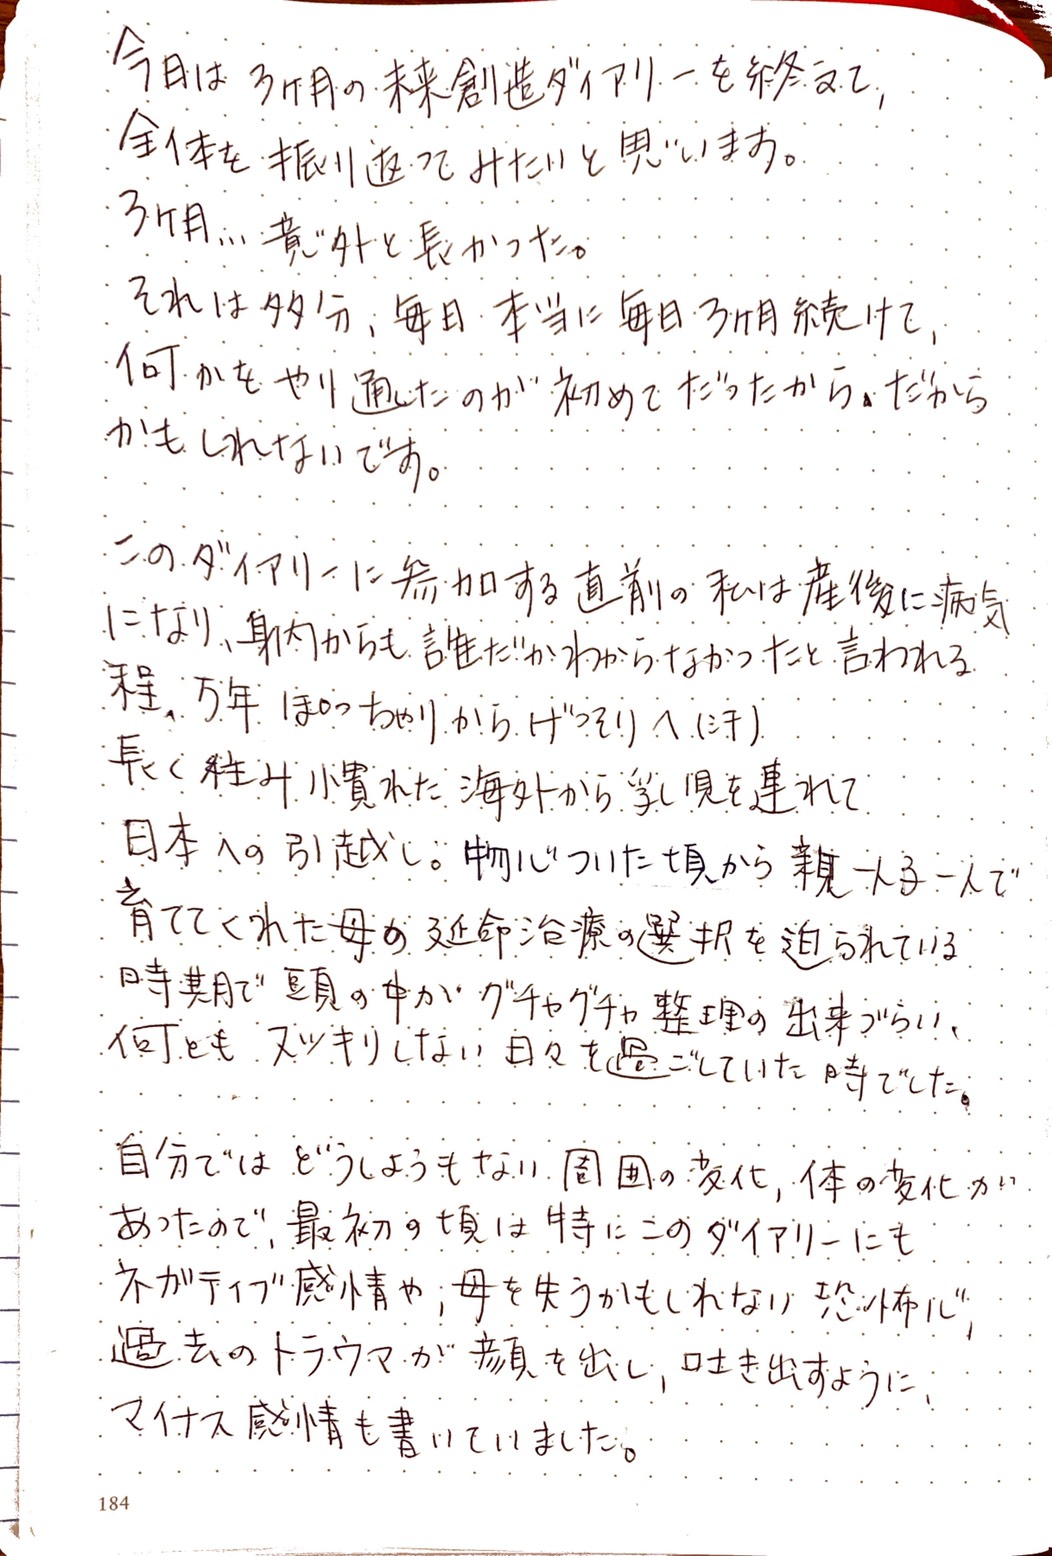 今日は 3ヶ月の 未来創造ダイアリーを終えて,
全体を 振り返って みたいと思います。
3ヶ月... 意外と長かった。
それは多分、毎日 本当に毎日3ヶ月続けて,
何かを やり通したのが 初めてだったから、だから
かもしれないです。
このダイアリーに参加する直前の私は産後に病気
になり、身内からも誰だかわからなかったと言われる
程、万年ぽっちゃりからげっそりへ(汗)
長く住み慣れた海外から乳児を連れて
日本への引越し。物心ついた頃から親一人子一人で
育ててくれた母の延命治療の選択を迫られている
時期で頭の中がグチャグチャ整理の出来づらい、
何ともスッキリしない日々を過ごしていた時でした。
自分ではどうしようもない周囲の変化, 体の変化が
あったので、最初の頃は特にこのダイアリーにも
ネガティブ感情や, 母を失うかもしれない恐怖心,
過去のトラウマが顔を出し, 吐き出すように,
マイナス感情も書いていました。
184